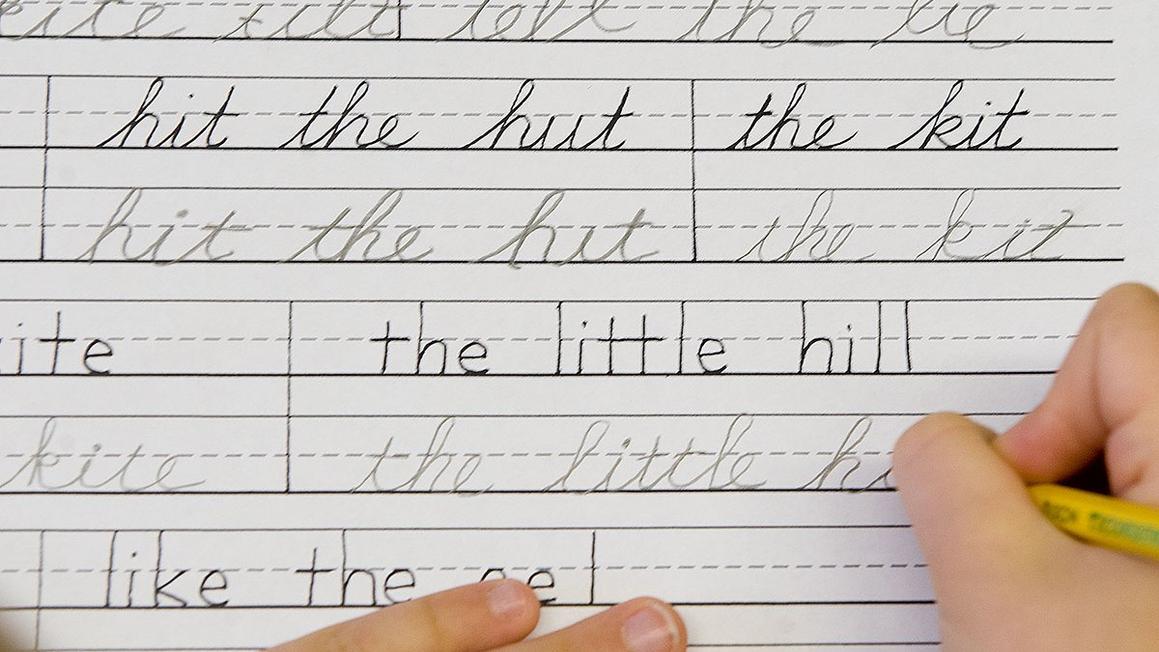 tell the lie
hit the hut the kit
hit the hut the kit
ite the little hill
kite the little hi
like the eel